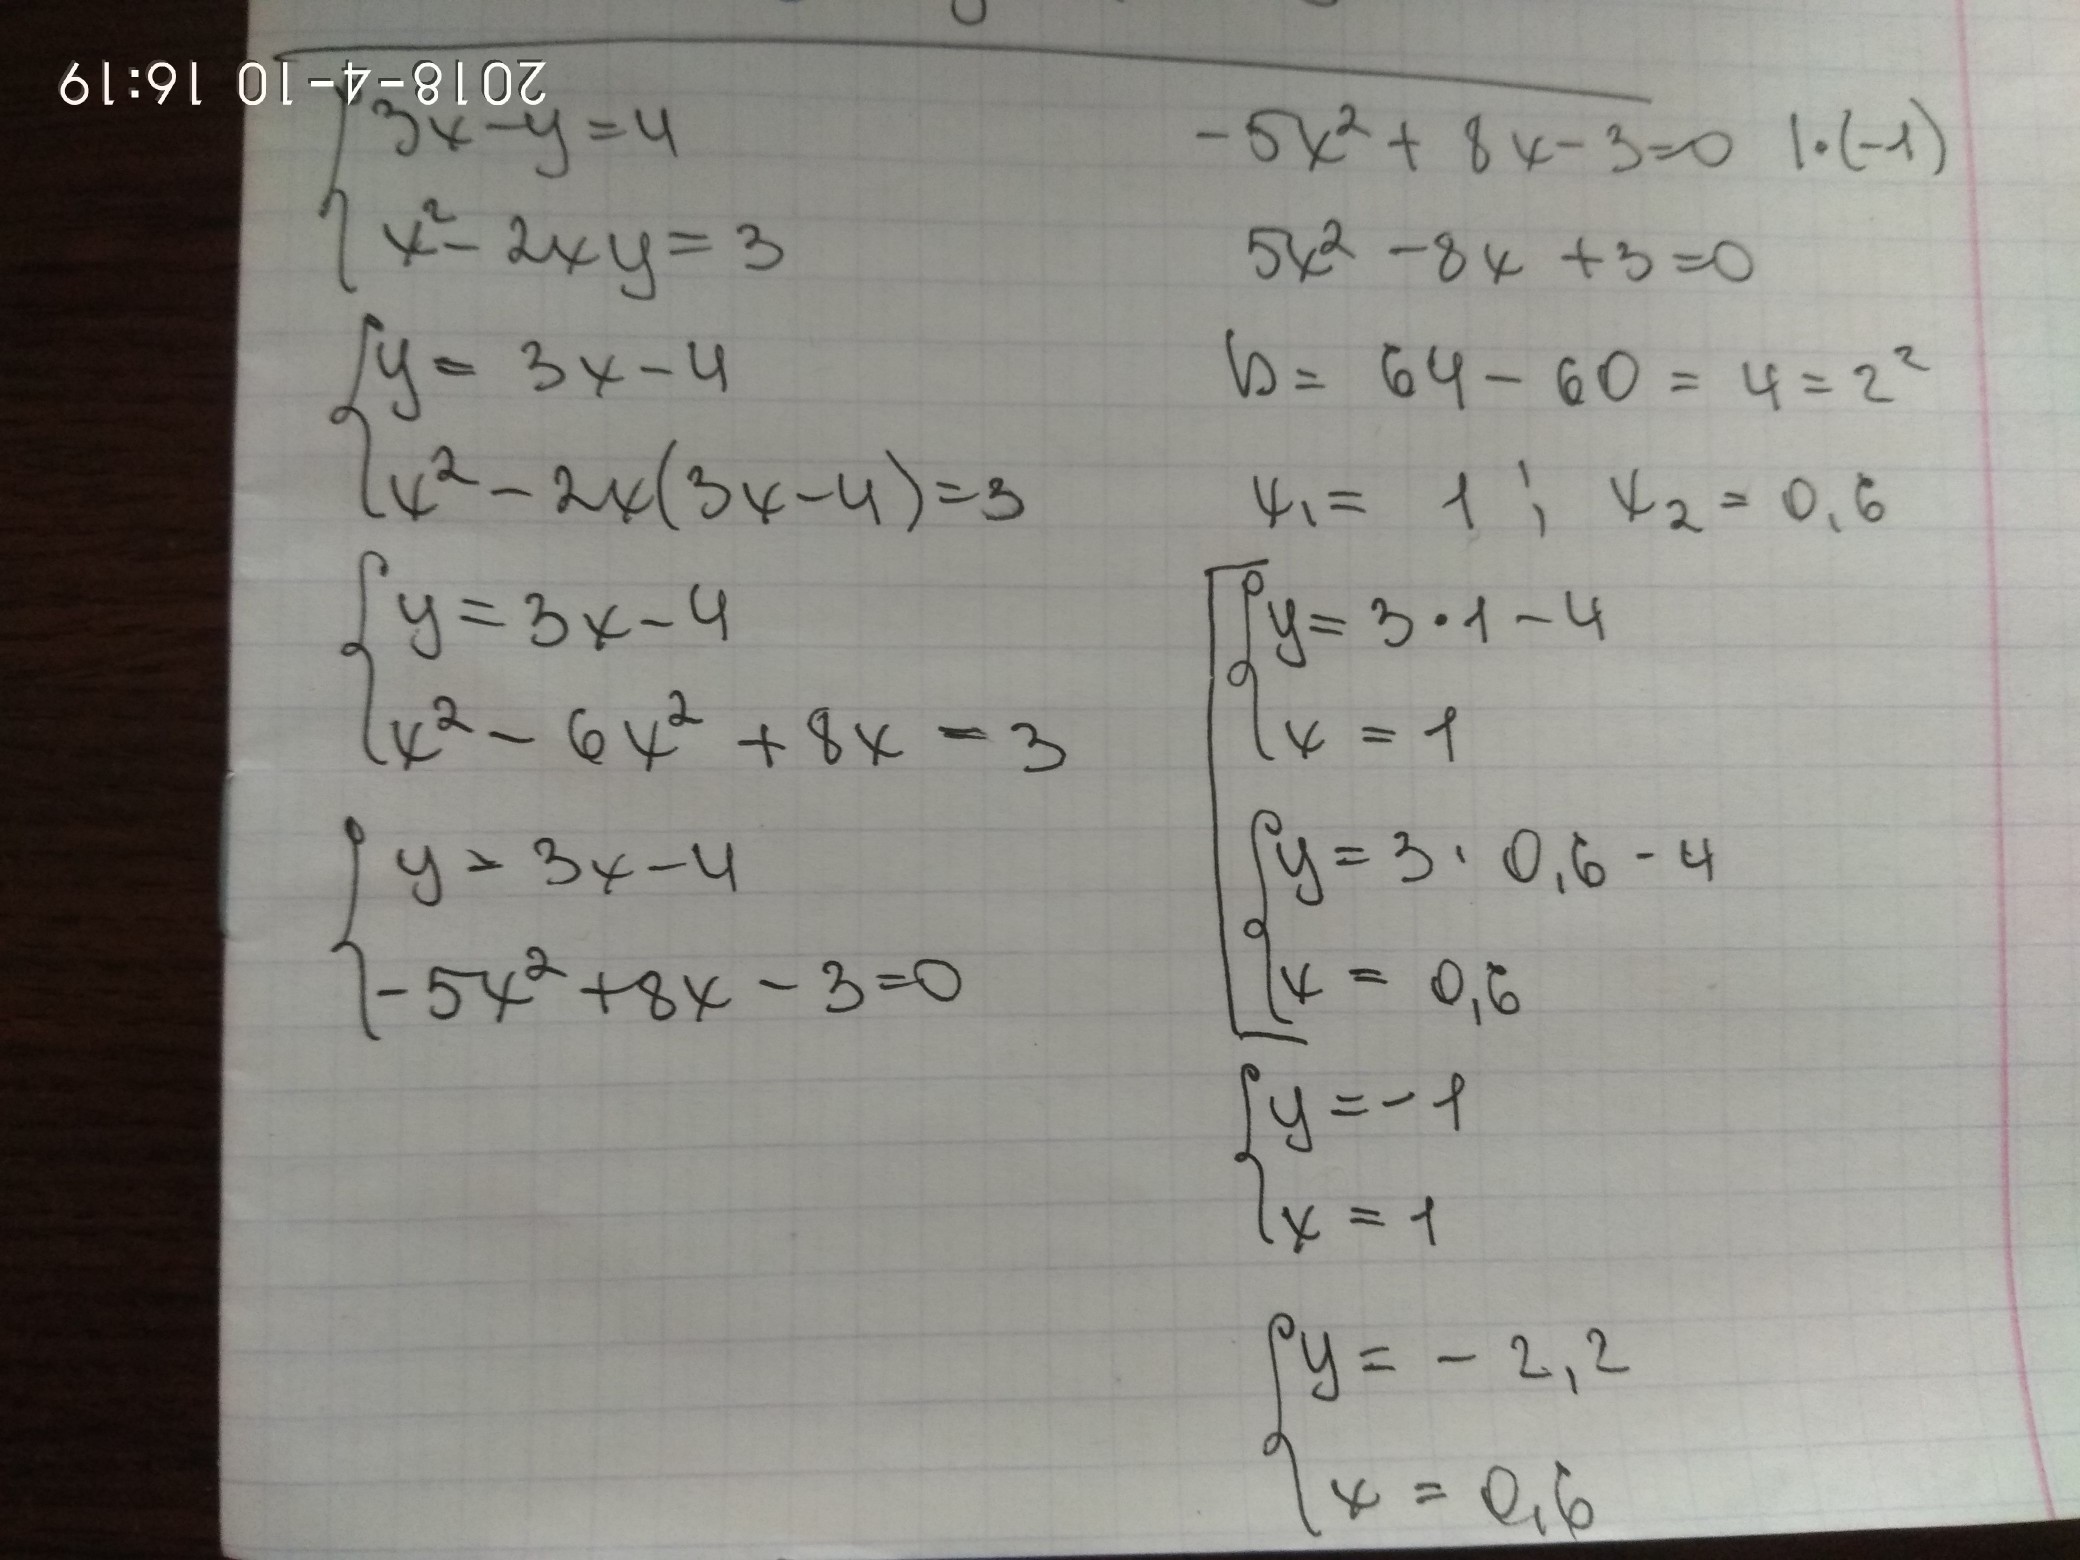 2018-4-10 16:19
3x-y=4
x²-2xy=3
y=3x-4
x²-2x(3x-4)=3
y=3x-4
x²-6x²+8x=3
y=3x-4
-5x²+8x-3=0
-5x²+8x-3=0 |·(-1)
5x²-8x+3=0
D=64-60=4=2²
x₁=1; x₂=0,6
y=3·1-4
x=1
y=3·0,6-4
x=0,6
y=-1
x=1
y=-2,2
x=0,6